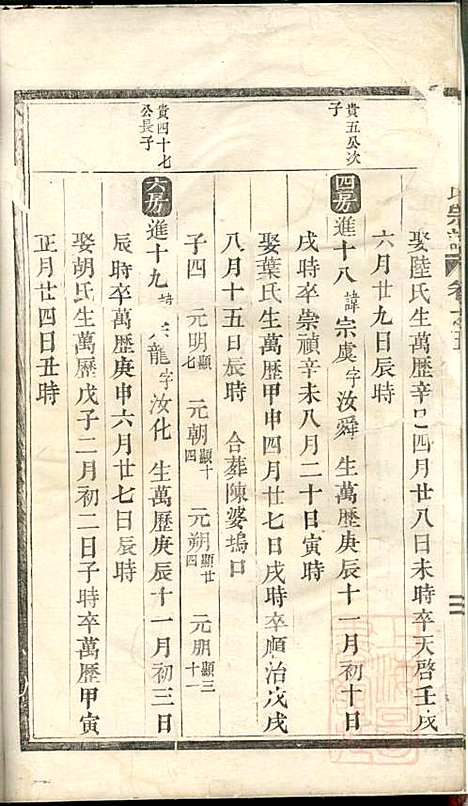 氏宗譜 卷之五
三
娶陸氏生萬歷辛巳四月廿八日未時卒天啓壬戌
六月廿九日辰時
貴五公次子
四房進十八諱宗虞字汝舜 生萬歷庚辰十一月初十日
戌時卒崇禎辛未八月二十日寅時
娶葉氏生萬歷甲申四月廿七日戌時卒順治戊戌
八月十五日辰時 合葬陳婆塢口
子四 元明顯七 元朝顯十四 元朔顯廿四 元朋顯三十一
貴四十七公長子
六房進十九諱宗龍字汝化 生萬歷庚辰十一月初三日
辰時卒萬歷庚申六月廿七日辰時
娶胡氏生萬歷戊子二月初二日子時卒萬歷甲寅
正月廿四日丑時